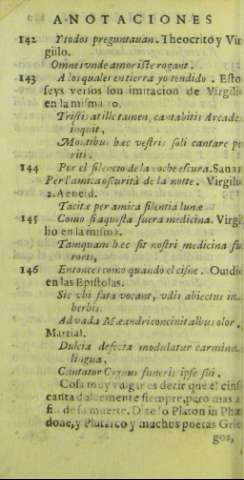 ANOTACIONES
142 Y todos preguntauan. Theocrito y Vir
gilio.
Omnes vnde amor iste rogant.
143 A los quales en tierra yo tendido. Esto
seys versos son imitacion de Virgilio
en la misma 10.
Tristis at ille tamen, cantabitis Arcades
inquit,
Montibus hæc vestris: soli cantare pe
riti.
144 Por el silencio de la noche escura. Sanaz
Per l'amica oscurità de la notte. Virgili
2. Aeneid.
Tacitæ per amica silentia lunæ
145 Como si aquesta fuera medicina. Virgi
lio en la misma.
Tamquam hæc sit nostri medicina fu
roris,
146 Entonces como quando el cisne. Ouidio
en las Epistolas.
Sic vbi fata vocant, vdis abiectus in
herbis.
Ad vada Mæandri concinit albus olor.
Martial.
Dulcia defecta modulatur carmina
lingua,
Cantator Cygnus funeris ipse sui.
Cosa muy vulgar es decir que el cisne
canta dulcemente siempre, pero mas a
fin de su muerte. Dizelo Platon in Phæ
done, y Plutarco y muchos poetas Grie
gos,